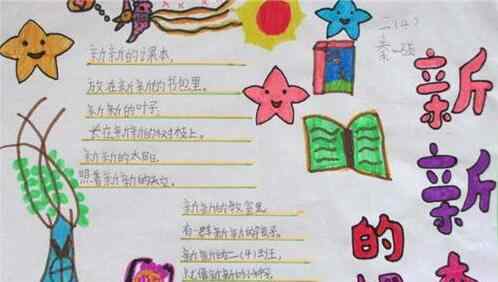 新新的课本,
放在新新的书包里。
新新的叶子
长在新新的树枝上。
新新的太阳
照着新新的天空。
新新的教室里
有一群新新的孩子。
新新的二(4)班,
新新的
二(4)
新新的